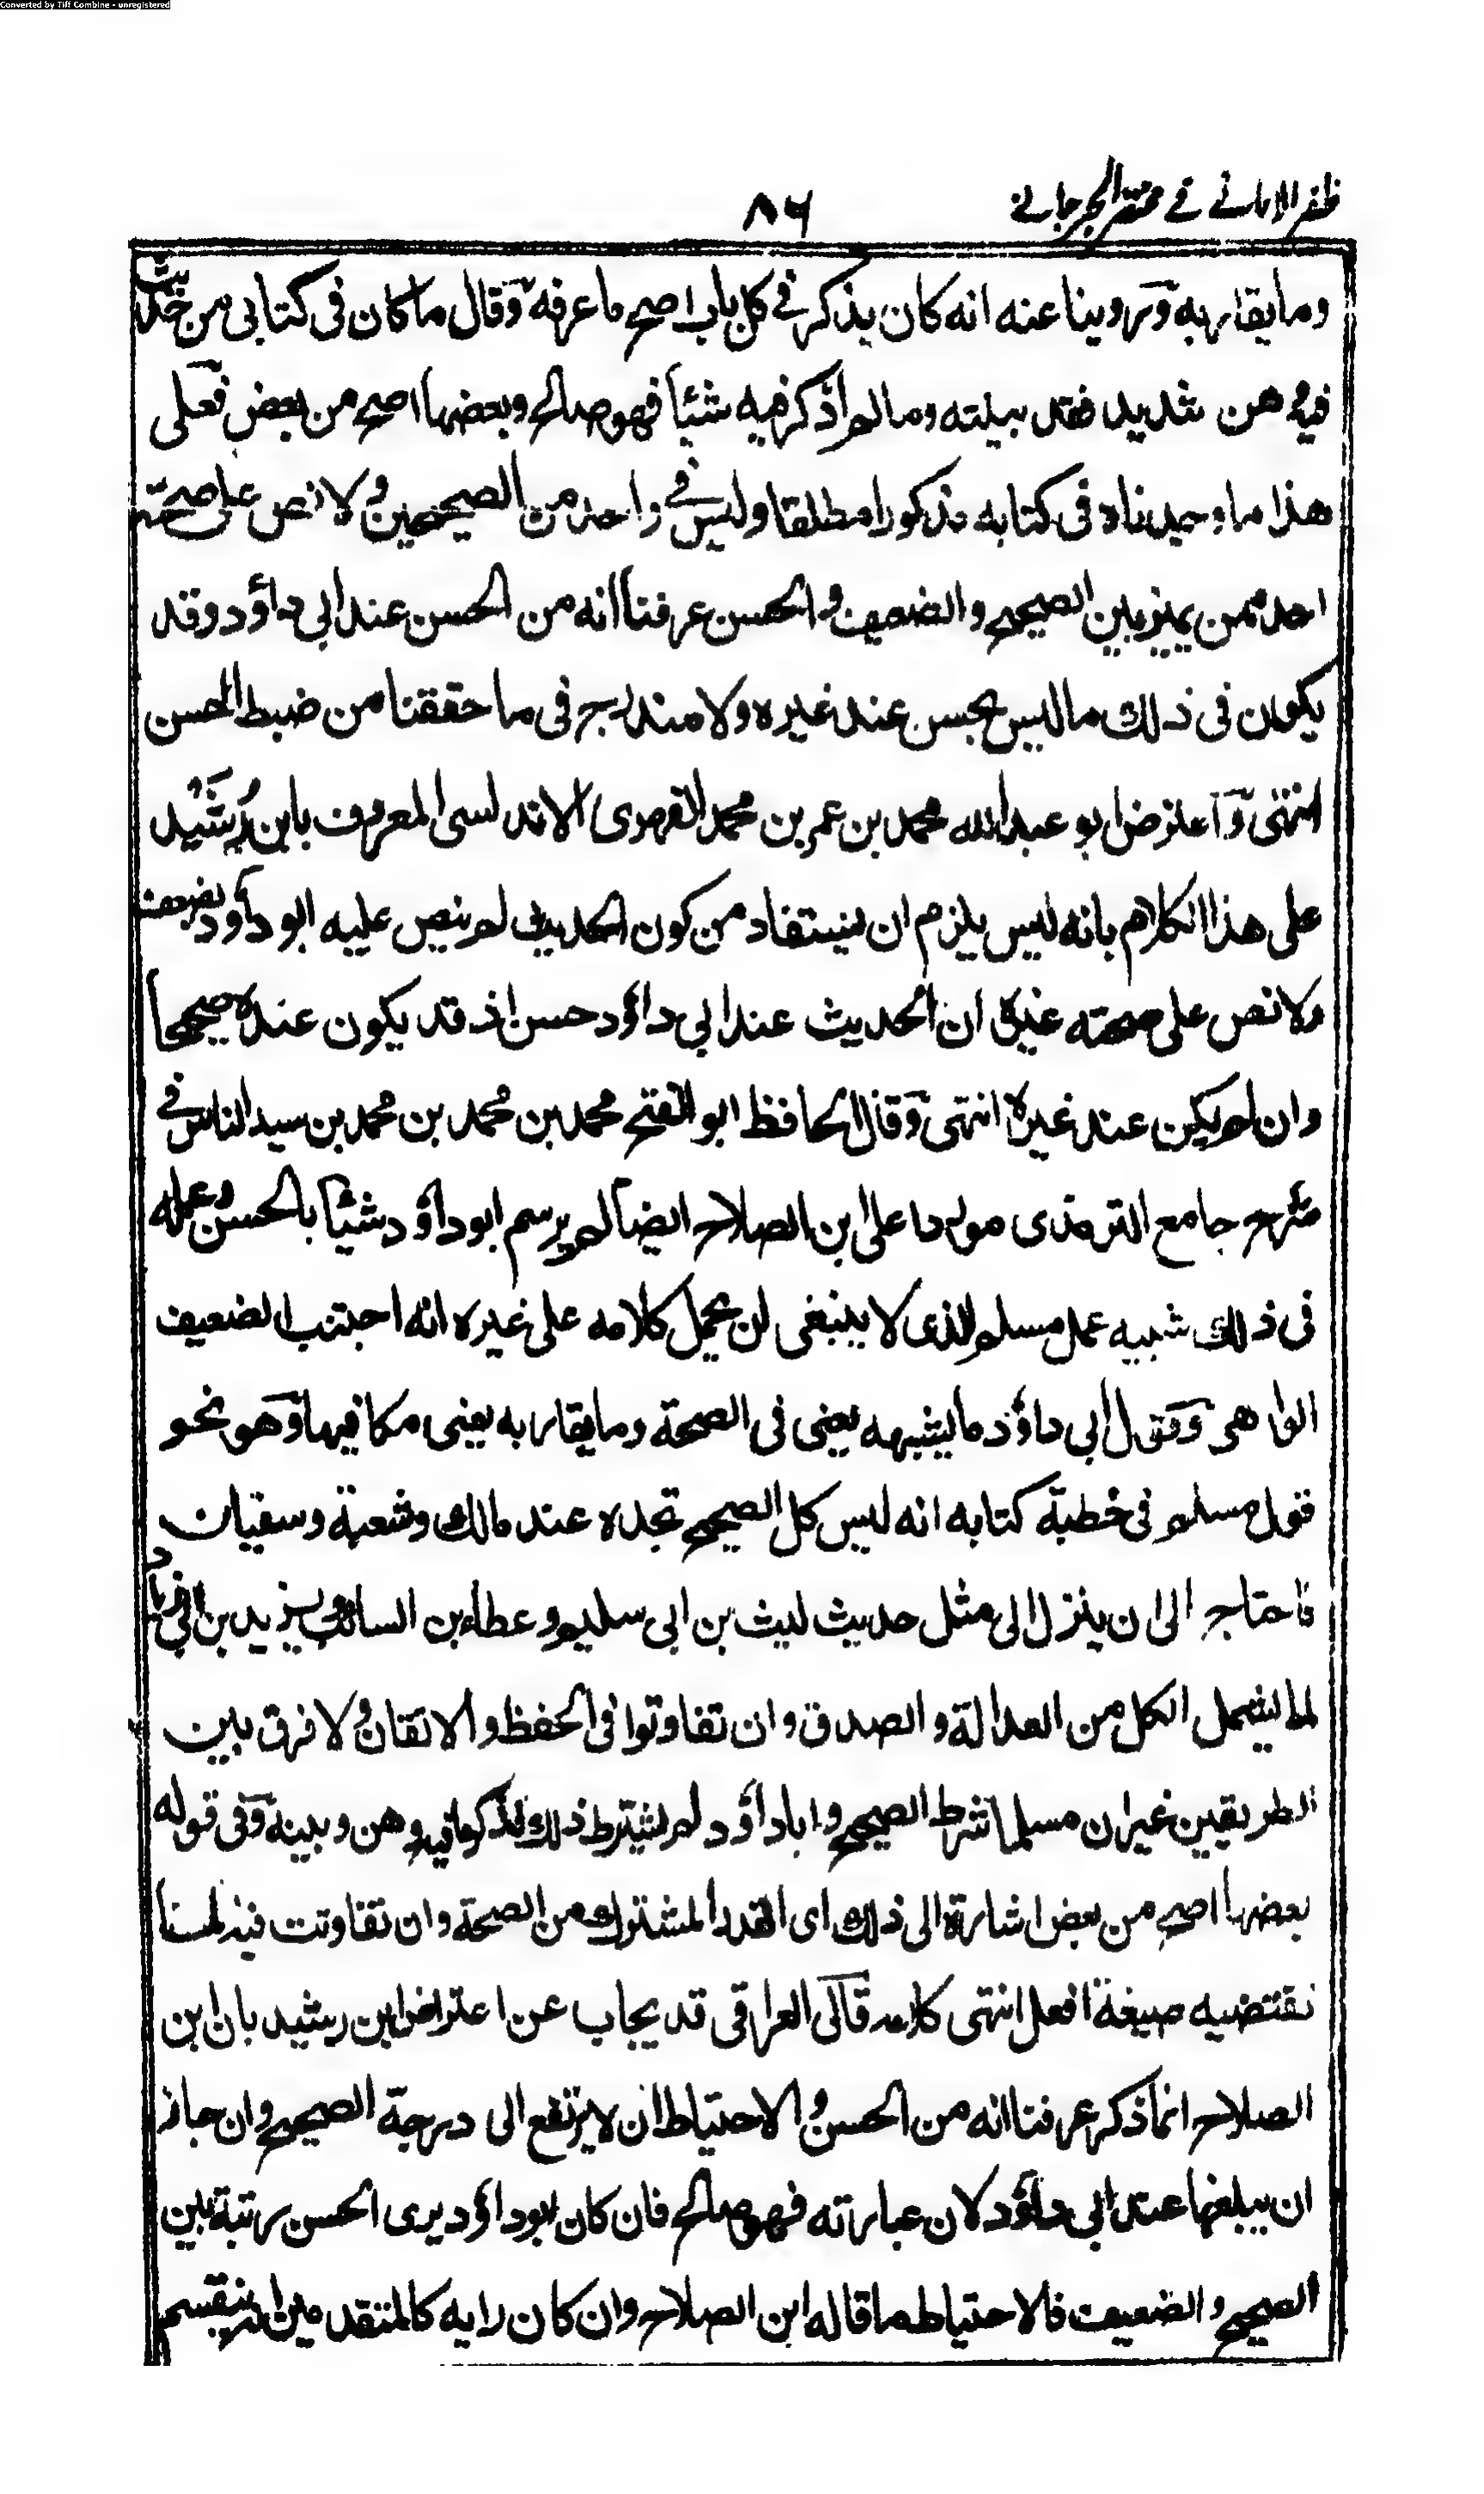 Converted by Tiff Combine - unregistered
ظفر الامانے فے مختصر الجرجانے
۸۶
وما يقاربه وروينا عنه انه كان يذكر فے كل باب اصح ما عرفه وقال ما كان فى كتابى من حديث
فيه وهن شديد فقد بينته وما لم اذكر فيه شيئا فهو صالح وبعضها اصح من بعض فعلى
هذا ما وجدناه فى كتابه مذكورا مطلقا وليس فے واحد من الصحيحين ولا نص على صحته
احد ممن يميز بين الصحيح والضعيف والحسن عرفنا انه من الحسن عند ابى داؤد وقد
يكون فى ذلك ما ليس بحسن عند غيره ولا مندرج فى ما حققنا من ضبط الحسن
انتهى واعترض ابو عبد الله محمد بن عمر بن محمد الفهرى الاندلسى المعروف بابن رُشَيد
على هذا الكلام بانه ليس يلزم ان يستفاد من كون الحديث لم ينص عليه ابو داؤد بضعف
ولا نص على صحته غيره ان الحديث عند ابى داؤد حسن اذ قد يكون عنده صحيحا
وان لم يكن عند غيره انتهى وقال الحافظ ابو الفتح محمد بن محمد بن محمد بن سيد الناس فے
شرح جامع الترمذى موردا على ابن الصلاح ايضا لم يرسم ابو داؤد شيئا بالحسن وعمله
فى ذلك شبيه عمل مسلم الذى لا ينبغى ان يحمل كلامه على غيره انه اجتنب الضعيف
الواهى وقول ابى داؤد ما يشبهه يعنى فى الصحة وما يقاربه يعنى مكافيها وهو نحو
قول مسلم فى خطبة كتابه انه ليس كل الصحيح تجده عند مالك وشعبة وسفيان
فاحتاج الى ان ينزل الى مثل حديث ليث بن ابى سليم وعطاء بن السائب ويزيد بن ابى زياد
لما يشمل الكل من العدالة والصدق وان تفاوتوا فى الحفظ والاتقان ولا فرق بين
الطريقين غير ان مسلما شرط الصحيح وابا داؤد لم يشترط ذلك فذكر ما فيه وهن وبينه وفى قوله
بعضها اصح من بعض اشارة الى ذلك اى القدر المشترك من الصحة وان تفاوتت فيه لما
تقتضيه صيغة افعل انتهى كلامه قال العراقى قد يجاب عن اعتراض ابن رشيد بان ابن
الصلاح انما ذكر عرفنا انه من الحسن والاحتياط ان لا يرتفع الى درجة الصحيح وان جاز
ان يبلغها عند ابى داؤد لان عبارته فهو صالح فان كان ابو داؤد يرى الحسن رتبة بين
الصحيح والضعيف فالاحتياط ما قاله ابن الصلاح وان كان رايه كالمتقدمين انه ينقسم